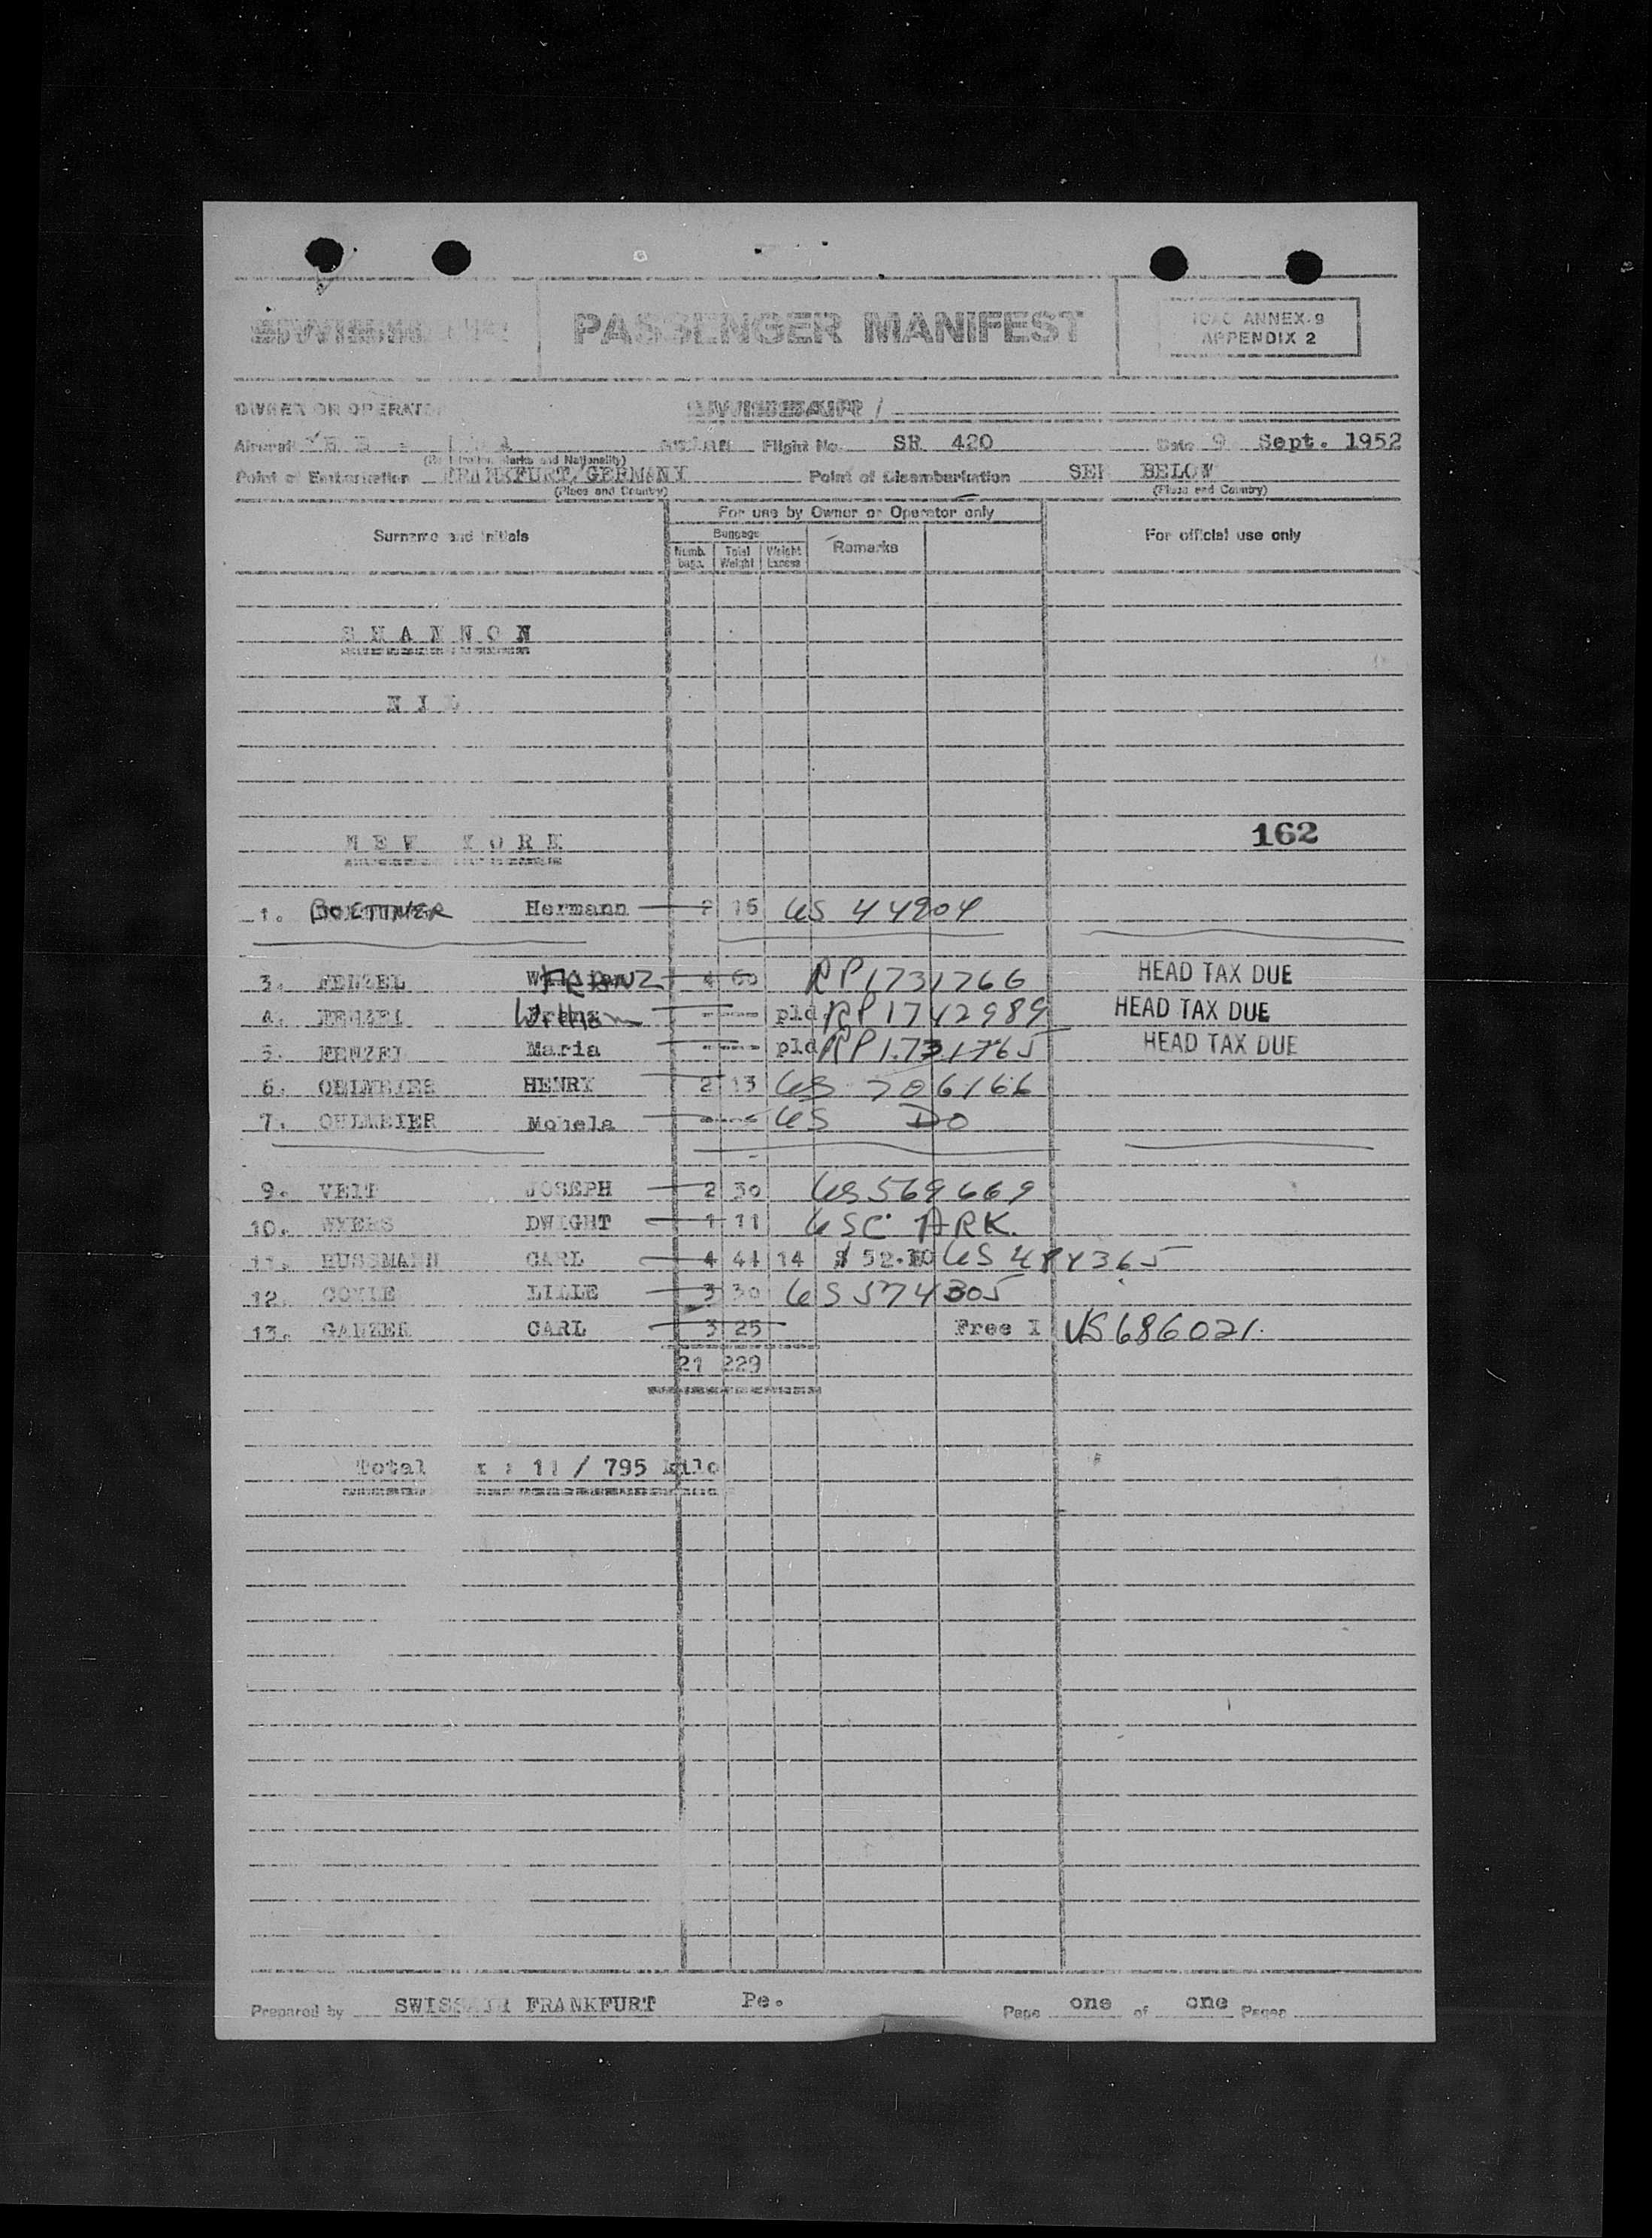 PASSENGER MANIFEST
ICAO ANNEX-9
APPENDIX 2
OWNER OR OPERATOR SWISSAIR /
Aircraft Flight No. SR 420 Date 9 Sept. 1952
(Registration Marks and Nationality)
Point of Embarkation FRANKFURT/GERMANY Point of Disembarkation SEE BELOW
(Place and Country) (Place and Country)
For use by Owner or Operator only
Surname and initials Baggage Remarks For official use only
Numb. bags. Total Weight Weight Excess
SHANNON
NIL
NEW YORK
162
1. BOETTNER Hermann 2 16 US 44904
3. FENZEL FRANZ 4 60 RP1731766 HEAD TAX DUE
4. FENZEL Wilham ---- pld RP1742989 HEAD TAX DUE
5. FENZEL Maria ---- pld RP1731765 HEAD TAX DUE
6. HENRY 2 13 US 706166
7. OHLMEIER ---- US DO
9. VEIT JOSEPH 2 30 US 569669
10. MYERS DWIGHT 1 11 USC ARK.
11. HUSSMANN CARL 4 44 14 $ 52.30 US 484365
12. LILLE 3 30 US 574305
13. GANZER CARL 3 25 Free I US 686021
21 229
Total / 795 kilo
Prepared by SWISSAIR FRANKFURT Pe. Page one of one Pages